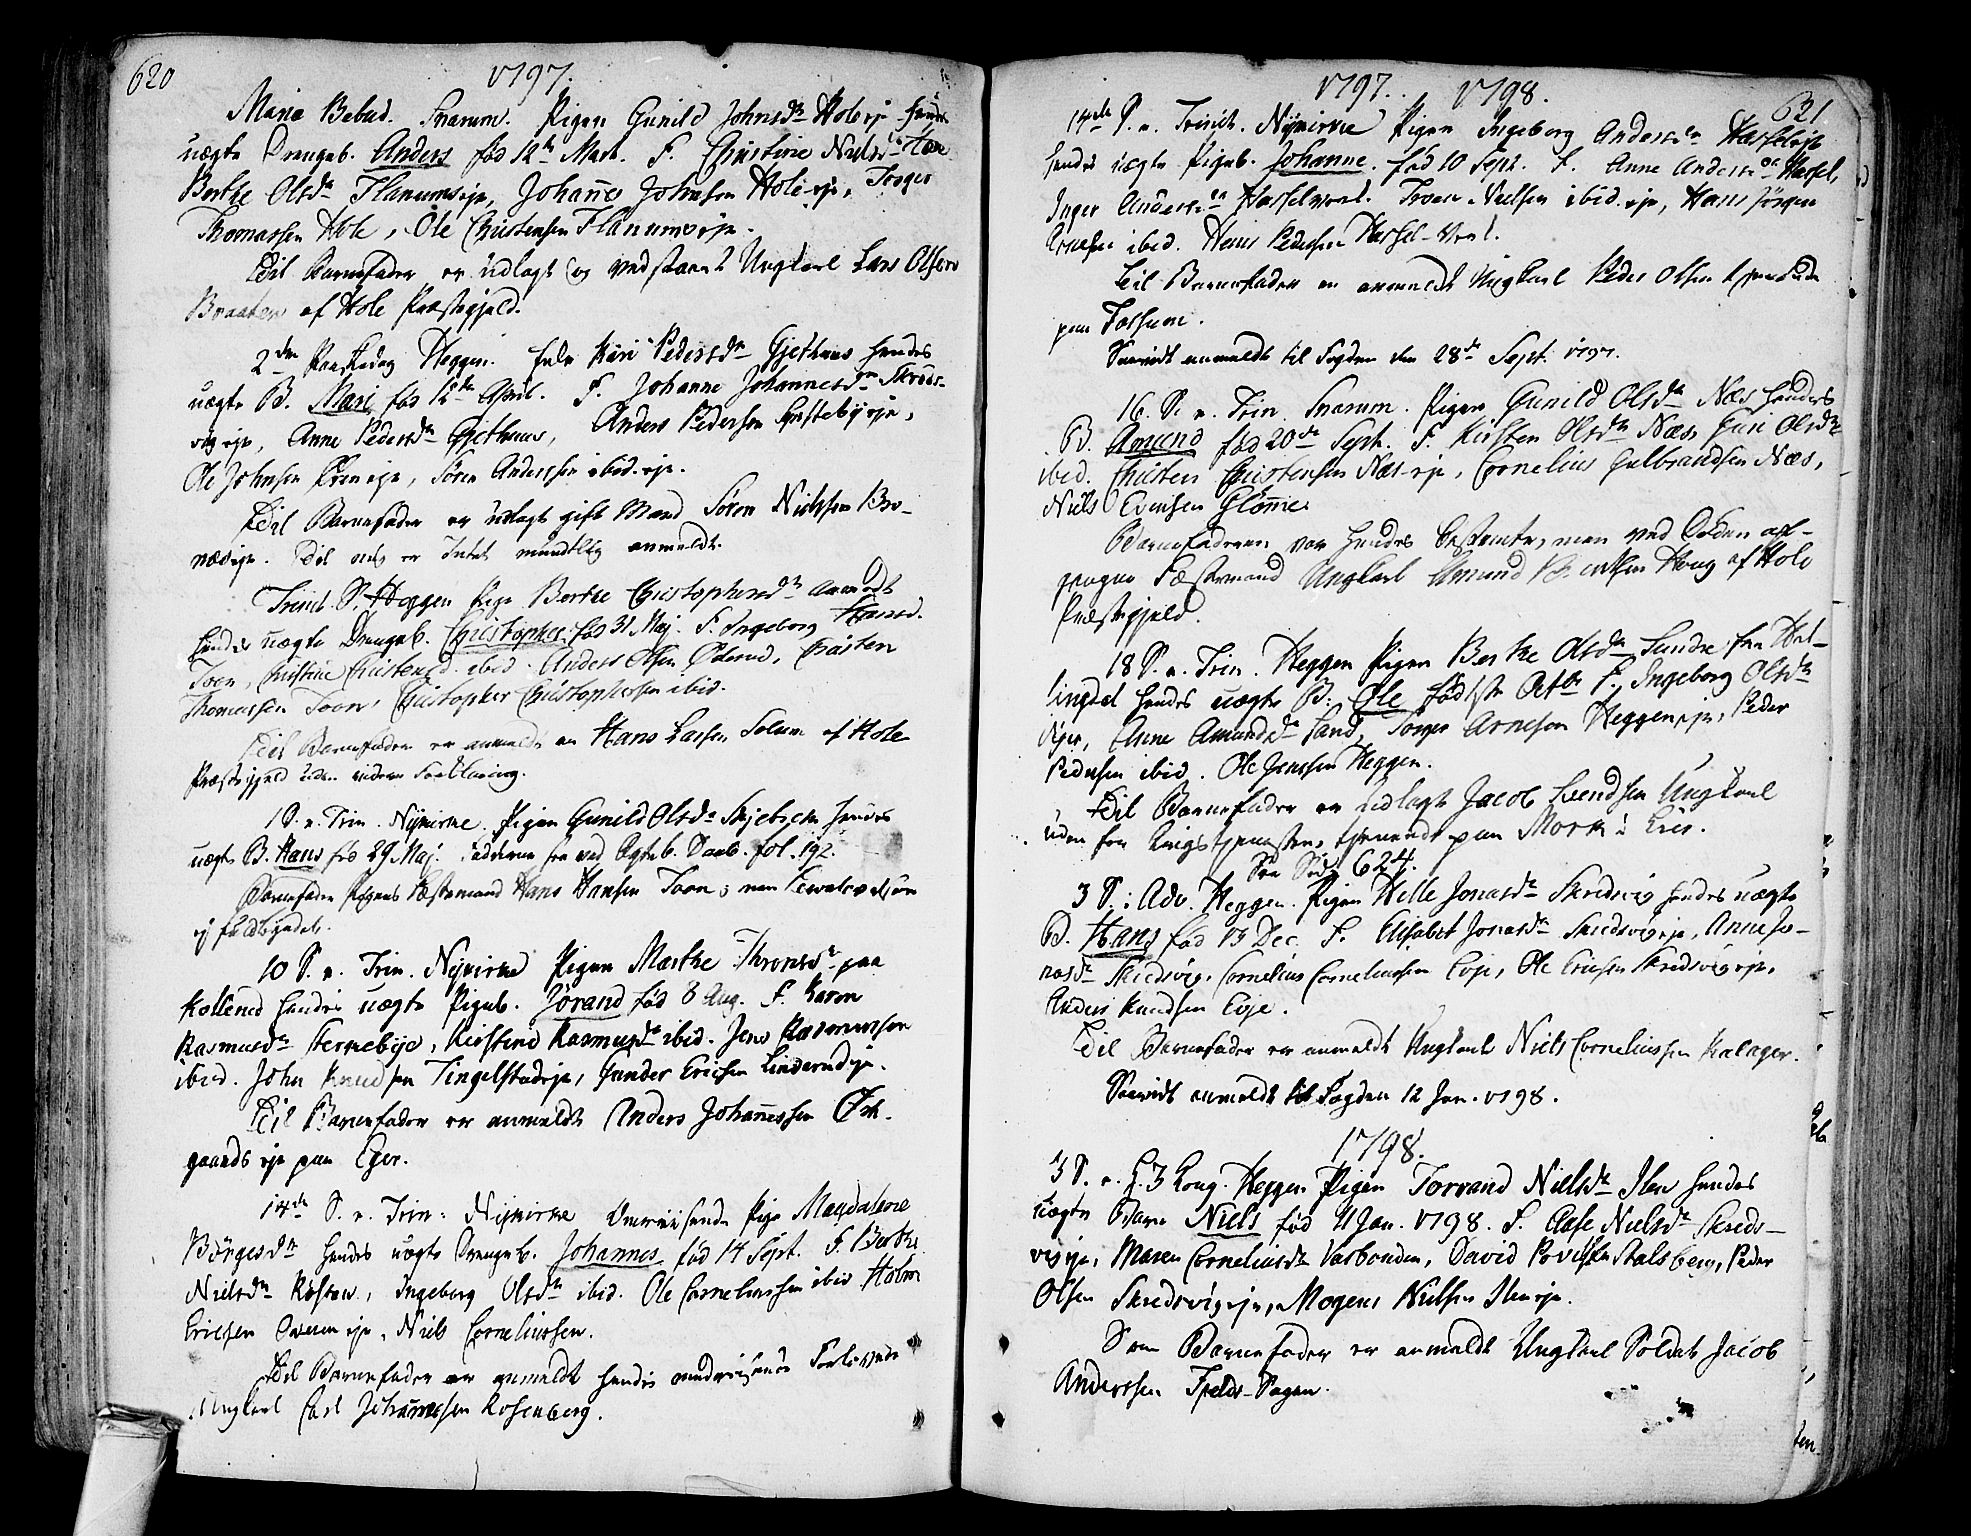 620
1797.
Maria Bebud. Snarum. Pigen Gunild Johnsdr Hole eje hendes
uægte Drengeb. Anders fød 12te Mart. F. Christine Nielsdr
Berthe Olsdr Flanumeje, Johannes Johnsen Hole-eje, Torger
Thomassen Hole, Ole Christensen Flanumseje.
Til Barnefader er udlagt og vedstaaet Ungkarl Lars Olsen
Braaten af Hole Præstegjeld.
2den Paaskedag Heggen. Kari Pedersdr Gjethuus hendes
uægte B. Mari fød 12te April. F. Johanne Johannesdr Skreds-
vig eje, Anne Pedersdr Gjethuus, Anders Pedersen eje,
Ole Johnsen eje, Sören Andersen ibid. eje.
Til Barnefader er udlagt gift Mand Sören Nielsen Bro-
næseje. Til er Intet mundtlig anmeldt.
Trinit. S. Heggen Pige Berthe Christophersdr
hendes uægte Drengeb. Christopher fød 31 Maj. F. Ingeborg Hansd.
Toen, Christine Christensd. ibid. Anders Olsen Christen
Thomassen Toen, Christopher Christophersen ibid.
Til Barnefader er anmeldt en Hans Larsen Solum af Hole
Præstegjeld uden videre Forklaring.
1 S. e. Trin. Nykirke. Pigen Gunild Olsdr hendes
uægte B. Hans fød 29 Maj. Fadderne see ved Ægteb. Daab. fol. 192.
Barnefader Pigens Fæstemand Hans Hansen Toen; men Trolovelsen
ej fuldbyrdet.
10 S. e. Trin. Nykirke Pigen Marthe Thronsdr paa
Kollerud hendes uægte Pigeb. Jörand fød 8 Aug. F. Karen
Rasmusdr Sternebye, Kirstine Rasmusdr ibid. Jens Rasmussen
ibid. John Knudsen Tingelstadeje, Gunder Ericsen Linderudeje.
Til Barnefader er anmeldt Anders Johannessen
gaards eje paa Eger.
14de S. e. Trin: Nykirke Omreisende Pige Magdalene
Börgesdr hendes uægte Drengeb. Johannes fød 14 Sept. F. Berthe
Nielsdr Kösten, Ingeborg Olsdr ibid. Ole Corneliussen ibid Holm
Ericsen eje, Niels Corneliussen.
Til Barnefader er anmeldt hendes omdrivende
Ungkarl Carl Johannessen Rosenberg.
1797. 1798.
621
14de S. e. Trinit. Nykirke Pigen Ingeborg Andersdr Hasseleje
hendes uægte Pigeb. Johanne fød 10 Sept. F. Anne Andersdr Hassel,
Inger Andersdr Hasselvent. Troen Nielsen ibid. eje, Hans Jörgen
ibid. Hans Pedersen Hassel-Vent.
Til Barnefader er anmeldt Ungkarl Peder Olsen tjenende
paa Fossum.
Saavidt anmeldt til Fogden den 28de Sept. 1797.
16. S. e. Trin Snarum. Pigen Gunild Olsdr Næs hendes
B. Amund fød 20de Sept. F. Kirsten Olsdr Næss Guri Olsdr
ibid. Christen Christensen Næs-eje, Cornelius Gulbrandsen Næs,
Niels Evensen Glömme.
Barnefaderen var hendes bestemte, men ved Döden af-
gangne Fæstemand Ungkarl Amund Houg af Hole
Præstegjeld.
18 S. e. Trin. Heggen Pigen Berthe Olsdr Sundre fra Hal-
lingdal hendes uægte B: Ole fød 1ste Octbr F. Ingeborg Olsdr
Anne Amundsdr Sand, Torger Arnesen Heggeneje, Peder
Pedersen ibid. Ole Jenssen Heggen.
Til Barnefader er udlagt Jacob Svendsen Ungkarl
uden for Krigstjenesten, tjenende paa Mork i Eger.
See Side 624.
3 S. i Adv. Heggen. Pigen Helle Jonasdr Skredsvig hendes uægte
B. Hans fød 13 Dec. F. Elisabet Jonasdr Skredsvigeje, Anne Jo-
nasdr Skredsvig, Cornelius Corneliussen Evje, Ole Ericsen Skredsvigeje,
Anders Knudsen Evje.
Til Barnefader er anmeldt Ungkarl Niels Corneliussen Kalager.
Saavidt anmeldt til Fogden 12 Jan. 1798.
1798.
3 S. e. H. 3 Kong. Heggen Pigen Torrand Nielsdr Ilen hendes
uægte Barn Niels fød 4 Jan. 1798. F. Aase Nielsdr Skreds-
vigeje, Maren Corneliusdr Varbonden, David Povelsen Stalsberg, Peder
Olsen Skredsvigeje, Mogens Nielsen Ileneje.
Som Barnefader er anmeldt Ungkarl Soldat Jacob
Anderssen